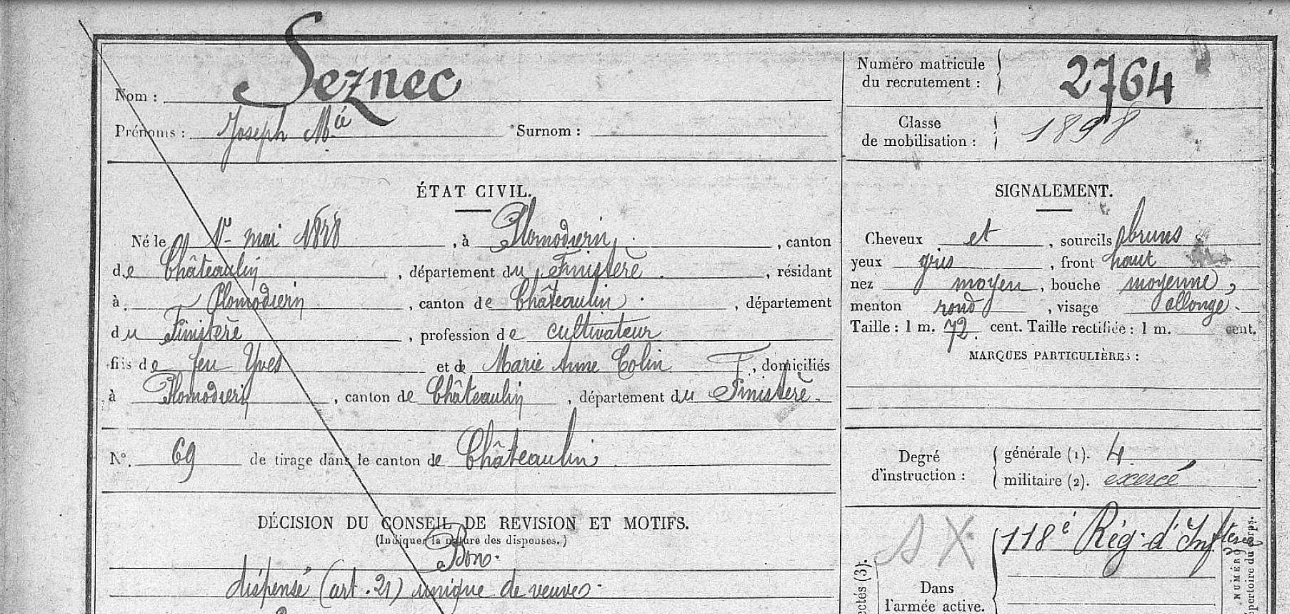 Nom : Seznec
Prénoms : Joseph Mie Surnom :
ÉTAT CIVIL.
Né le 1er mai 1878, à Plomodiern, canton
de Châteaulin, département du Finistère, résidant
à Plomodiern, canton de Châteaulin, département
du Finistère, profession de cultivateur
fils de feu Yves et de Marie Anne Colin, domiciliés
à Plomodiern, canton de Châteaulin, département du Finistère.
N°. 69 de tirage dans le canton de Châteaulin
DÉCISION DU CONSEIL DE REVISION ET MOTIFS.
(Indiquer la nature des dispenses.)
Bon.
dispensé (art. 21) unique de veuve.
Numéro matricule
du recrutement : 2764
Classe
de mobilisation : 1898
SIGNALEMENT.
Cheveux et, sourcils bruns
yeux gris, front haut
nez moyen, bouche moyenne,
menton rond, visage allongé.
Taille : 1 m. 72 cent. Taille rectifiée : 1 m. cent.
MARQUES PARTICULIÈRES :
Degré
d'instruction :
générale (1). 4
militaire (2). exercé
AX
118e Rég. d'Infterie
Dans
l'armée active.